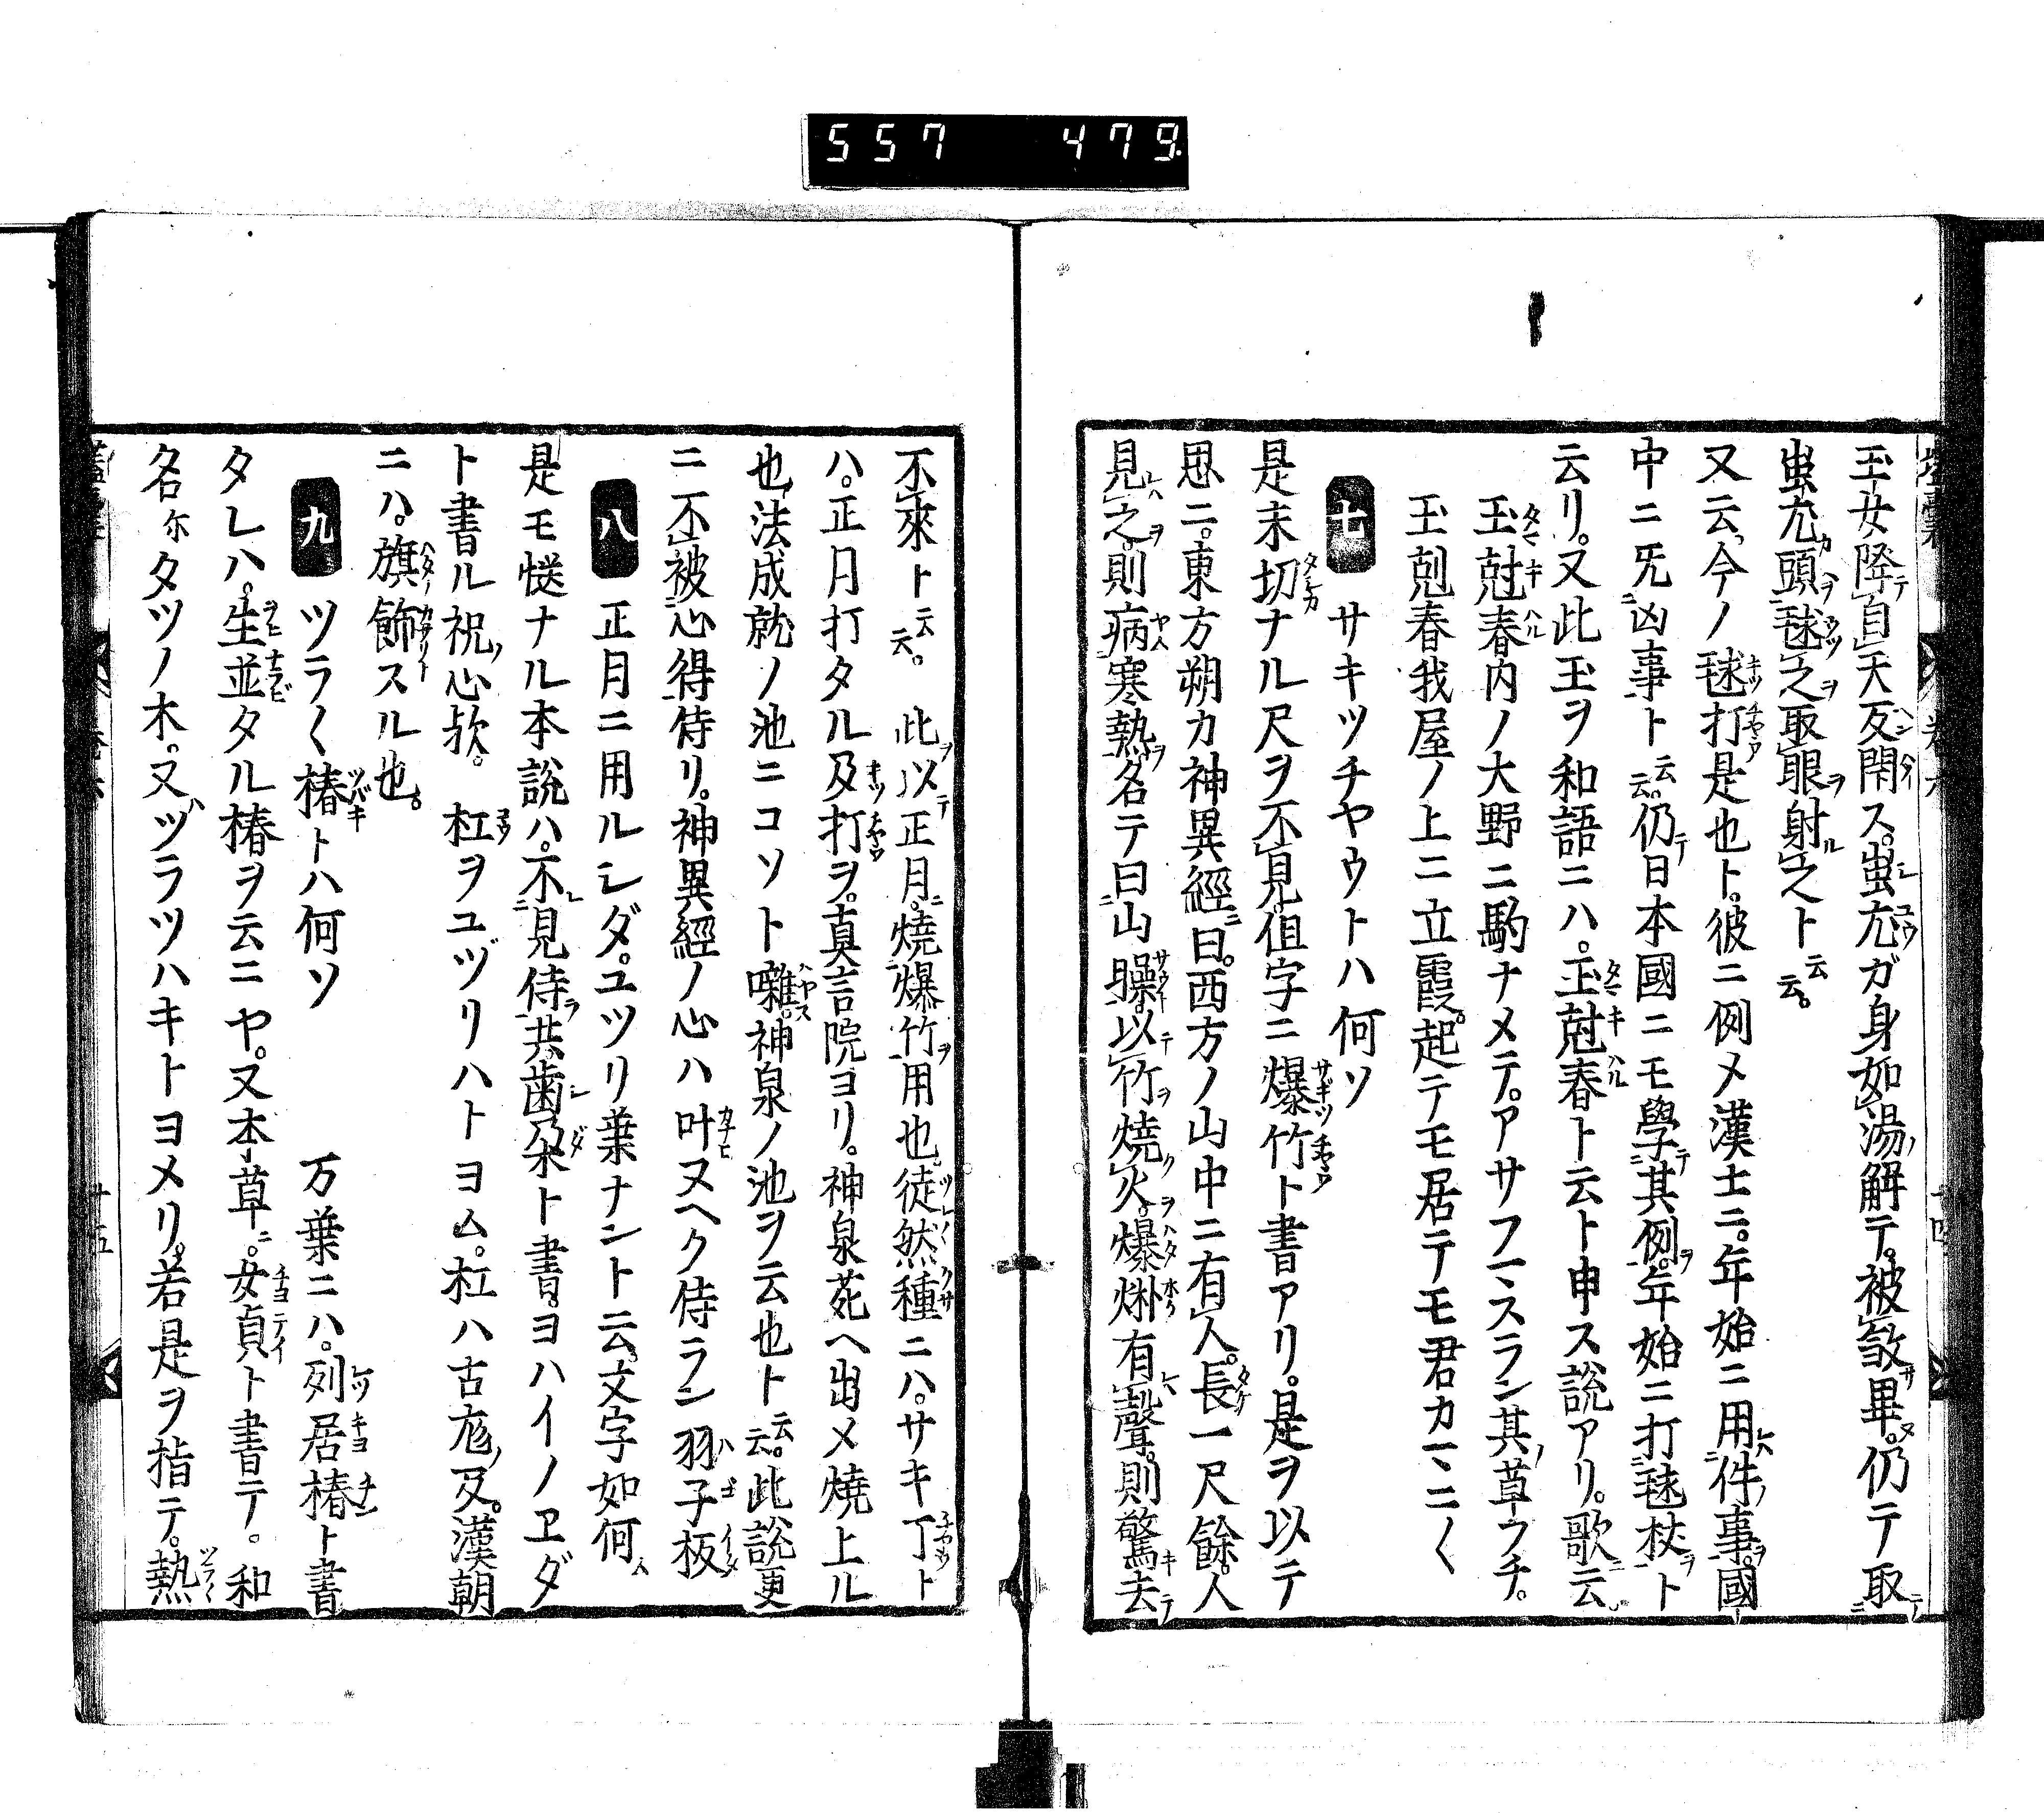 557 479.
玉女降自天反閇ス。蚩尤ガ身如湯解テ。被敛畢。仍テ取
蚩尤頭毬之取眼射之ト云云。
又云。今ノ毬打是也ト。彼ニ例メ漢土ニ。年始ニ用件事。國
中ニ旡凶事ト云云。仍日本國ニモ學其例。年始ニ打毬杖ト
云リ。又此玉ヲ和語ニハ。玉尅春ト云ト申ス説アリ。歌云
玉尅春内ノ大野ニ駒ナメテ。アサフマスラン其草フチ。
玉剋春我屋ノ上ニ立霞。起テモ居テモ君カマニ〱
七 サキツチヤウトハ何ソ
是末切ナル尺ヲ不見。但字ニ爆竹ト書アリ。是ヲ以テ
思ニ。東方朔カ神異經曰。西方ノ山中ニ有人。長一尺餘。人
見之。則病寒熱。名テ曰山臊。以竹燒火。爆烞有聲。則驚去
不來ト云云。此以正月。燒爆竹用也。徒然種ニハ。サキ丁ト
ハ。正月打タル及打ヲ。真言院ヨリ。神泉苑ヘ出メ燒上ル
也。法成就ノ池ニコソト囃。神泉ノ池ヲ云也ト云云。此説更
ニ不被心得侍リ。神異經ノ心ハ叶ヌヘク侍ラン羽子板
八 正月ニ用ルシダ。ユツリ葉ナント云。文字如何
是モ慥ナル本説ハ。不見侍共歯朶ト書。ヨハイノヱダ
ト書ル祝心欤。杠ヲユヅリハトヨム。杠ハ古旄及。漢朝
ニハ。旗飾スル也。
九 ツラ〱椿トハ何ソ 万葉ニハ。列居椿ト書
タレハ。生並タル椿ヲ云ニヤ。又本草。女貞ト書テ。和
名尓タツノ木。又ツラツハキトヨメリ。若是ヲ指テ。熱